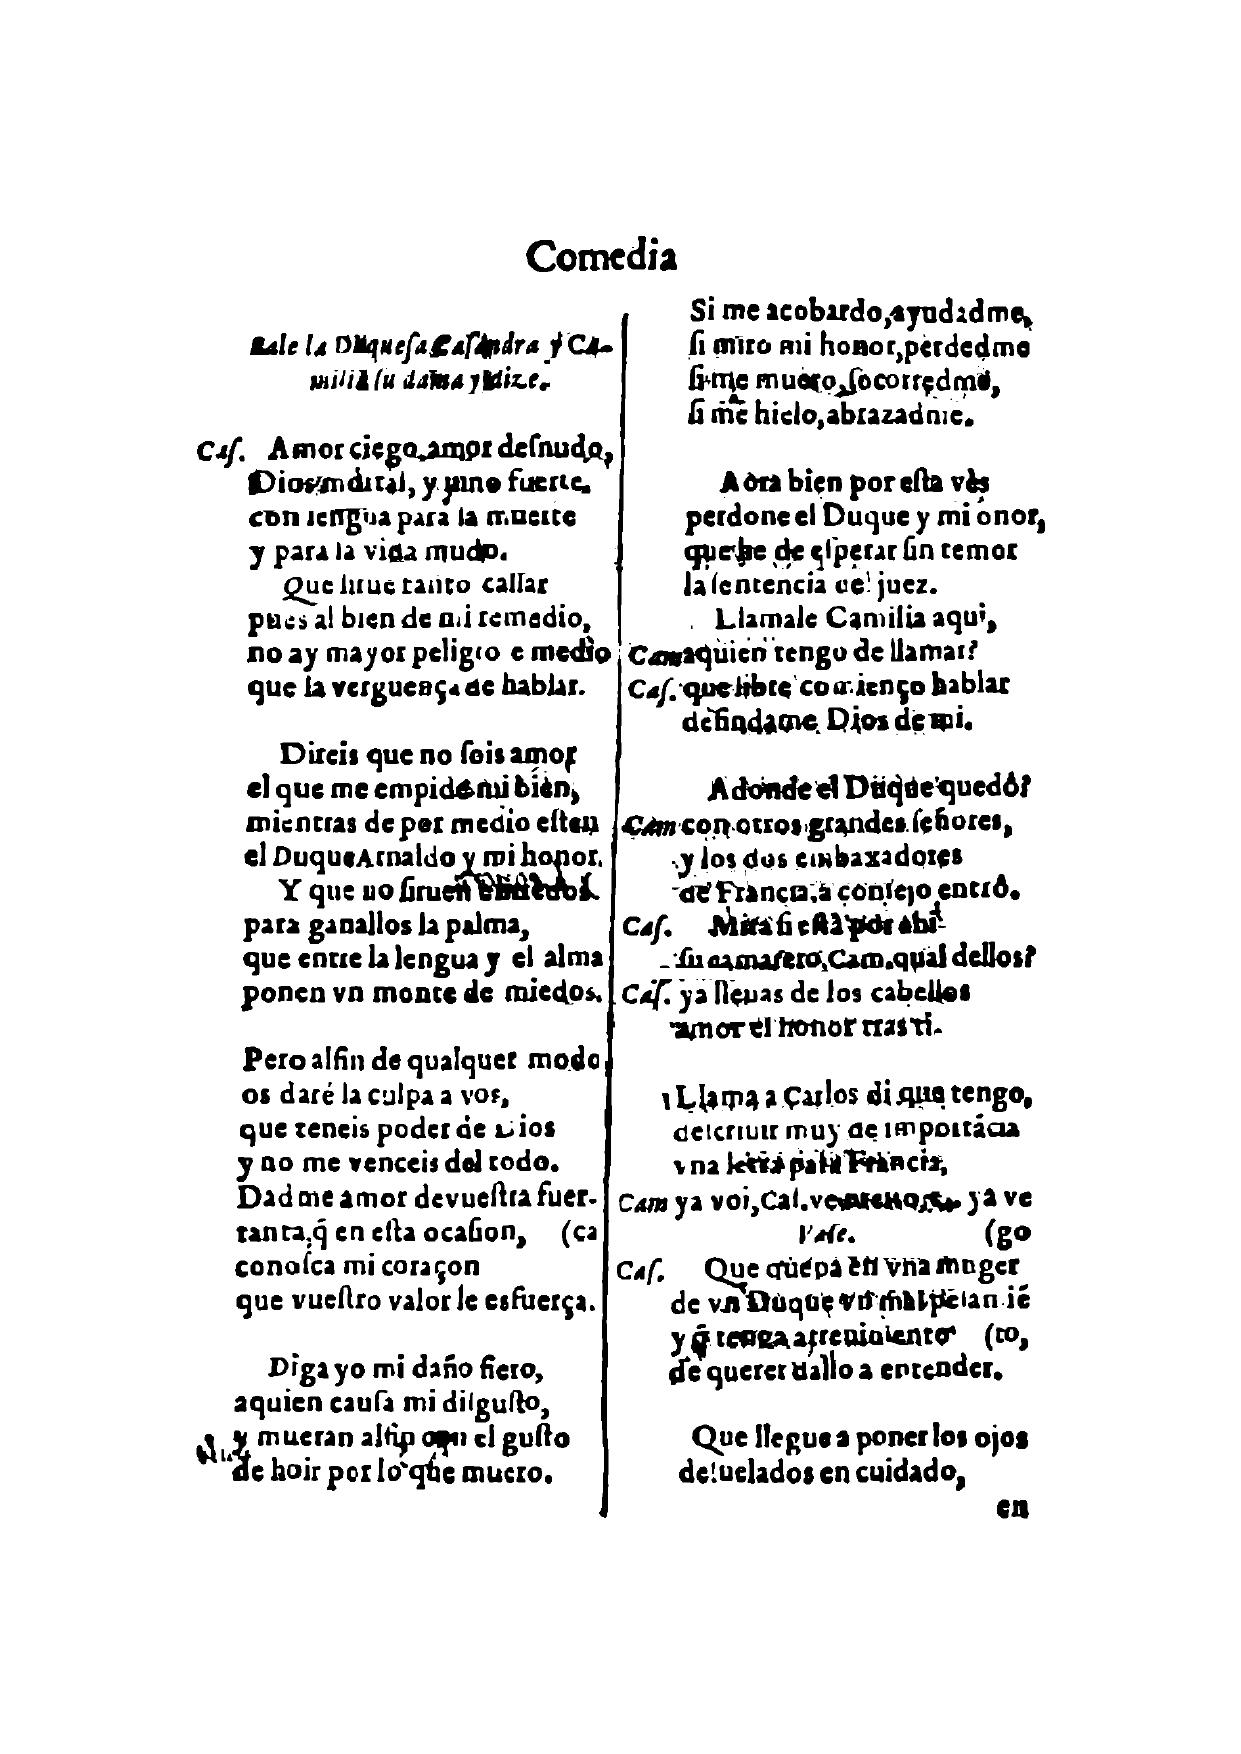 Comedia
Sale la Duquesa Casandra y Ca-
milia su dama y dize.
Cas. Amor ciego, amor desnudo,
Dios y fuerte.
con lengua para la muerte
y para la vida mudo.
Que siruе tanto callar
pues al bien de mi remedio,
no ay mayor peligro e medio
que la verguença de hablar.
Direis que no sois amor
el que me empide mi bien,
mientras de por medio esten
el Duque Arnaldo y mi honor.
Y que no siruen
para ganallos la palma,
que entre la lengua y el alma
ponen vn monte de miedos.
Pero alfin de qualquer modo
os daré la culpa a vos,
que teneis poder de Dios
y no me venceis del todo.
Dadme amor devuestra fuer-
tanta, q̃ en esta ocasion, (ca
conosca mi coraçon
que vuestro valor le esfuerça.
Diga yo mi daño fiero,
aquien causa mi disgusto,
y mueran alfin con el gusto
de hoir por lo que muero.
Si me acobardo, ayudadme,
si miro mi honor, perdedme
si me muero, socorredme,
si me hielo, abrazadme.
Aora bien por esta vès
perdone el Duque y mi onor,
que he de esperar sin temor
la sentencia del juez.
Llamale Camilia aqui,
Cam aquien tengo de llamar?
Cas. que libre comienço hablar
defindame Dios de mi.
Adonde el Duque quedò?
Cam con otros grandes señores,
y los dos embaxadores
de Francia, a consejo entrò.
Cas. Mira si està por ahi
su camarero, Cam. qual dellos?
Cas. ya lleuas de los cabellos
amor el honor tras ti.
Llama a Carlos di que tengo,
descriuir muy de importãcia
vna letra para Francia,
Cam ya voi, Cas. ve ya ve
Vase. (go
Cas. Que quepa en vna muger
de vn Duque vn mal pensan ié
y q̃ tenga atreuimiento (to,
de querer dallo a entender.
Que llegue a poner los ojos
desuelados en cuidado,
en